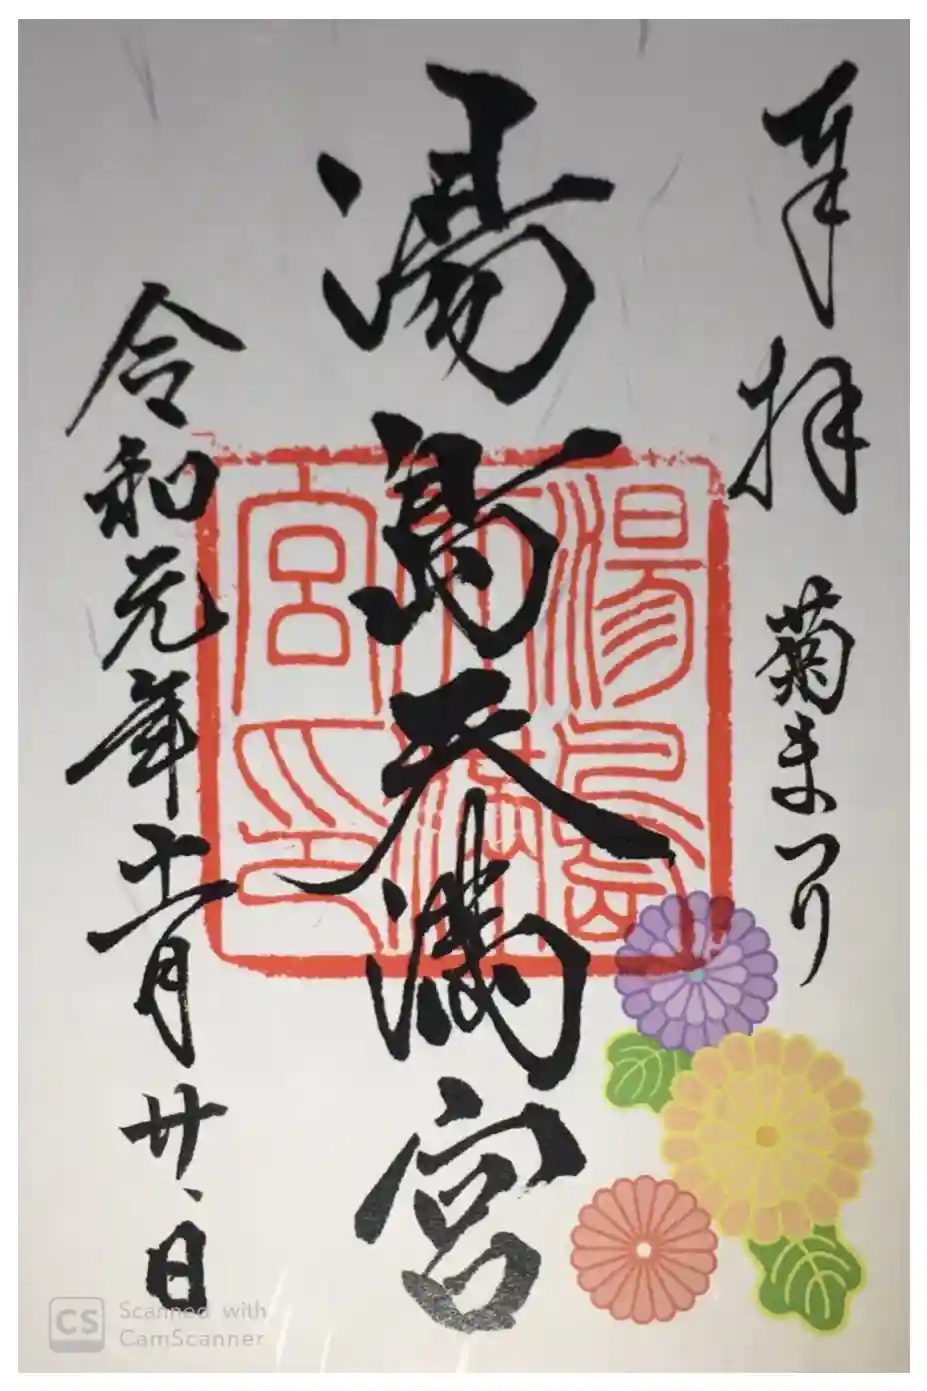 奉拝 菊まつり
湯島天満宮
令和元年十一月廿一日
湯島
天満
宮印
CS Scanned with
CamScanner